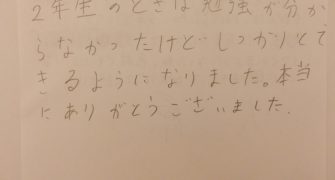 2年生のときは勉強が分か
らなかったけどしっかりとて
きるようになりました。本当
にありがとうございました.